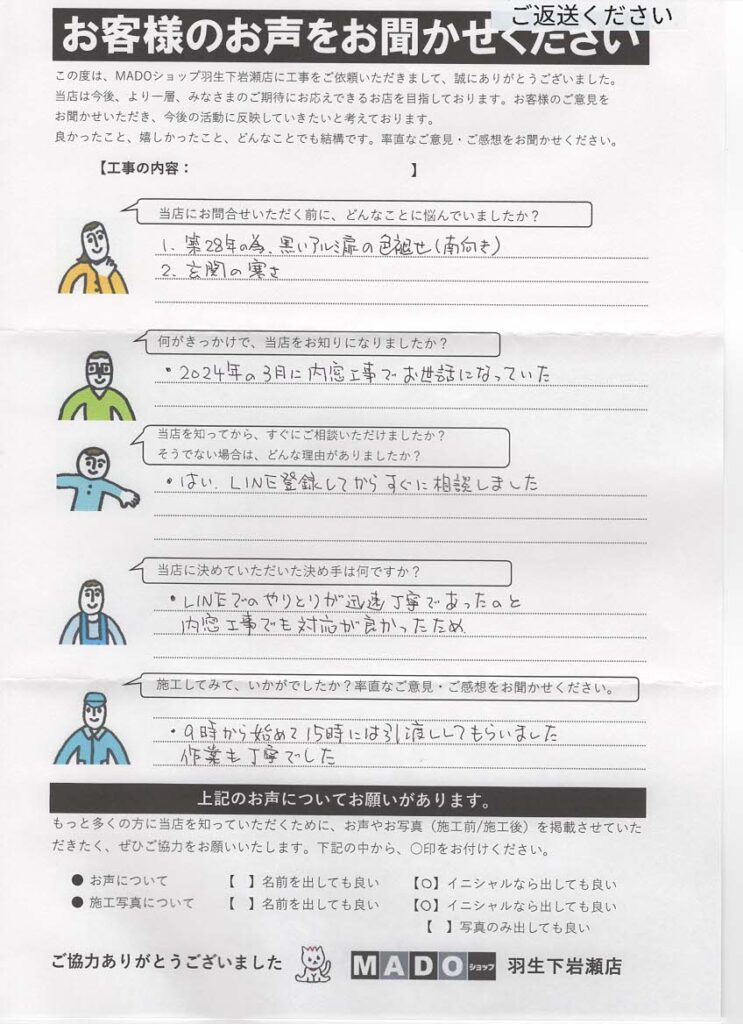 ご返送ください
お客様のお声をお聞かせください
この度は、MADOショップ羽生下岩瀬店に工事をご依頼いただきまして、誠にありがとうございました。
当店は今後、より一層、みなさまのご期待にお応えできるお店を目指しております。お客様のご意見を
お聞かせいただき、今後の活動に反映していきたいと考えております。
良かったこと、嬉しかったこと、どんなことでも結構です。率直なご意見・ご感想をお聞かせください。
【工事の内容： 】
当店にお問合せいただく前に、どんなことに悩んでいましたか？
1. 築28年の為、黒いアルミ扉の色褪せ(南向き)
2. 玄関の寒さ
何がきっかけで、当店をお知りになりましたか？
・2024年の3月に内窓工事でお世話になっていた
当店を知ってから、すぐにご相談いただけましたか？
そうでない場合は、どんな理由がありましたか？
・はい、LINE登録してからすぐに相談しました
当店に決めていただいた決め手は何ですか？
・LINEでのやりとりが迅速丁寧であったのと
内窓工事でも対応が良かったため
施工してみて、いかがでしたか？率直なご意見・ご感想をお聞かせください。
・9時から始めて15時には引渡ししてもらいました
作業も丁寧でした
上記のお声についてお願いがあります。
もっと多くの方に当店を知っていただくために、お声やお写真（施工前/施工後）を掲載させていた
だきたく、ぜひご協力をお願いいたします。下記の中から、○印をお付けください。
● お声について 【 】名前を出しても良い 【○】イニシャルなら出しても良い
● 施工写真について 【 】名前を出しても良い 【○】イニシャルなら出しても良い
【 】写真のみ出しても良い
ご協力ありがとうございました MADOショップ 羽生下岩瀬店